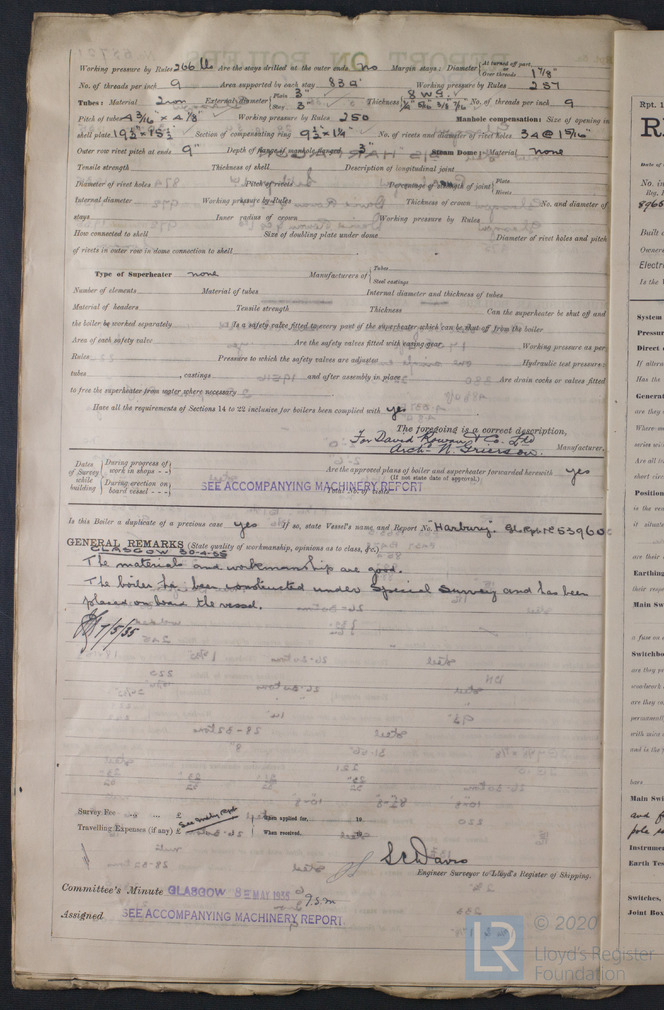 Working pressure by Rules 266 lb Are the stays drilled at the outer ends No Margin stays: Diameter { At turned off part, or Over threads 1 7/8"
No. of threads per inch 9 Area supported by each stay 83 Working pressure by Rules 257
Tubes: Material Iron External diameter { Plain 3" Stay 3" Thickness { 8 W.G. 1/4" 5/16" 3/8" 7/16" No. of threads per inch 9
Pitch of tubes 4 3/16" x 4 1/8" Working pressure by Rules 250 Manhole compensation: Size of opening in
shell plate Section of compensating ring 9 1/2" x 1 1/4" No. of rivets and diameter of rivet holes 34 @ 15/16"
Outer row rivet pitch at ends 9" Depth of flange if manhole flanged 3" Steam Dome: Material None
Tensile strength Thickness of shell Description of longitudinal joint
Diameter of rivet holes Pitch of rivets Percentage of strength of joint { Plate Rivets
Internal diameter Working pressure by Rules Thickness of crown No. and diameter of
stays Inner radius of crown Working pressure by Rules
How connected to shell Size of doubling plate under dome Diameter of rivet holes and pitch
of rivets in outer row in dome connection to shell
Type of Superheater None Manufacturers of { Tubes Steel castings
Number of elements Material of tubes Internal diameter and thickness of tubes
Material of headers Tensile strength Thickness Can the superheater be shut off and
the boiler be worked separately Is a safety valve fitted to every part of the superheater which can be shut off from the boiler
Area of each safety valve Are the safety valves fitted with easing gear Working pressure as per
Rules Pressure to which the safety valves are adjusted Hydraulic test pressure:
tubes , castings and after assembly in place Are drain cocks or valves fitted
to free the superheater from water where necessary
Have all the requirements of Sections 14 to 22 inclusive for boilers been complied with Yes
The foregoing is a correct description,
For David Rowan & Co. Ltd
Arch. N. Grierson. Manufacturer.
Dates of Survey while building { During progress of work in shops - - During erection on board vessel - - - Are the approved plans of boiler and superheater forwarded herewith Yes
(If not state date of approval.)
SEE ACCOMPANYING MACHINERY REPORT
Total No. of visits
Is this Boiler a duplicate of a previous case Yes If so, state Vessel's name and Report No. "Harbury". Gls. Rpt. No. 53960
GENERAL REMARKS (State quality of workmanship, opinions as to class, &c.)
GLASGOW 30-4-35
The materials and workmanship are good.
The boiler has been constructed under Special Survey and has been
placed on board the vessel.
7/5/35
Survey Fee £ See Mchy Rpt. When applied for, 19
Travelling Expenses (if any) £ When received, 19
S. C. Davis
Engineer Surveyor to Lloyd's Register of Shipping.
Committee's Minute GLASGOW 8 MAY 1935
Assigned SEE ACCOMPANYING MACHINERY REPORT.
Rpt. 1
Date of
No. in
Reg.
Built
Owners
Electri
Is the
System
Pressur
Direct
If altern
Has the
General
are they
Where
series wi
Are all
short circ
Position
is the
it situate
are their
Earthing
their resp
Main Sw
a fuse on
Switchbo
are they p
woodwork
are they in
permanentl
with mica
and is the
here
Main Swi
and f
pole
Instrumen
Earth Tes
Switches,
Joint Box
LR
© 2020
Lloyd's Register
Foundation